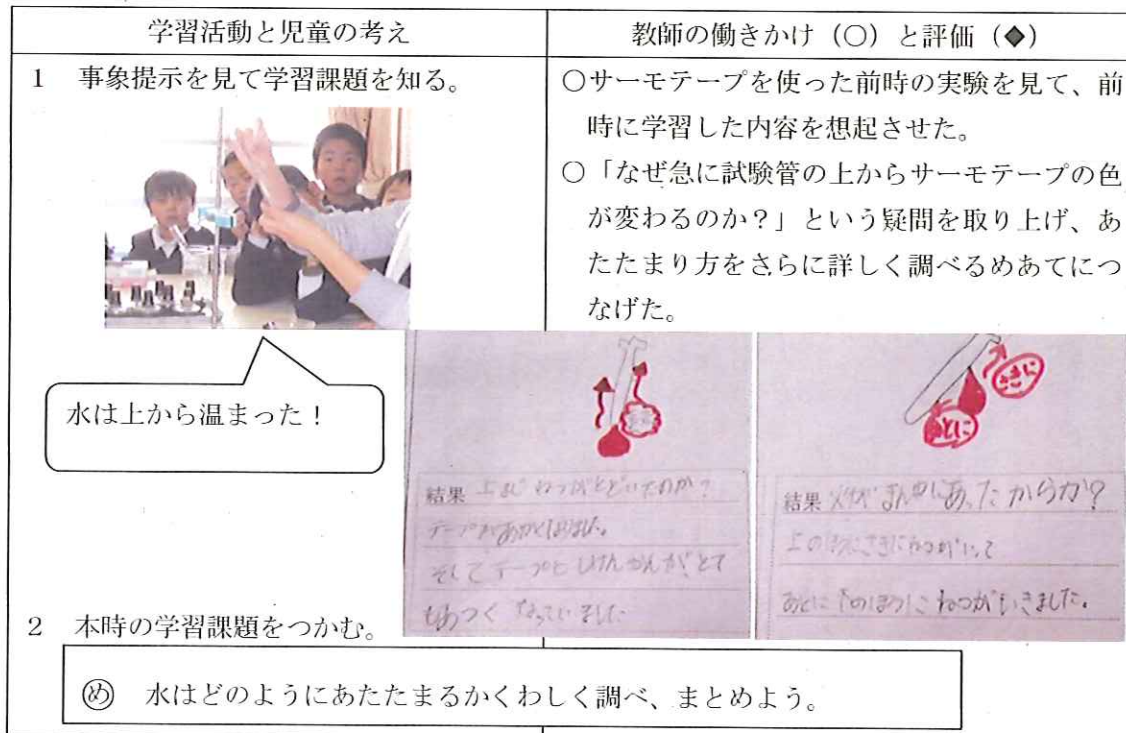 学習活動と児童の考え
教師の働きかけ（○）と評価（◆）
1 事象提示を見て学習課題を知る。
○サーモテープを使った前時の実験を見て、前
時に学習した内容を想起させた。
○「なぜ急に試験管の上からサーモテープの色
が変わるのか？」という疑問を取り上げ、あ
たたまり方をさらに詳しく調べるめあてにつ
なげた。
水は上から温まった！
さきに
あとに
結果 上まで ねつがとどいたのか？
テープがあかくなりました。
そして テープと しけんかんが、とて
もあつく なっていました
結果 火が まん中にあったからか？
上のほうにさきにねつがいって
あとに下のほうにねつがいきました。
2 本時の学習課題をつかむ。
㋱ 水はどのようにあたたまるかくわしく調べ、まとめよう。